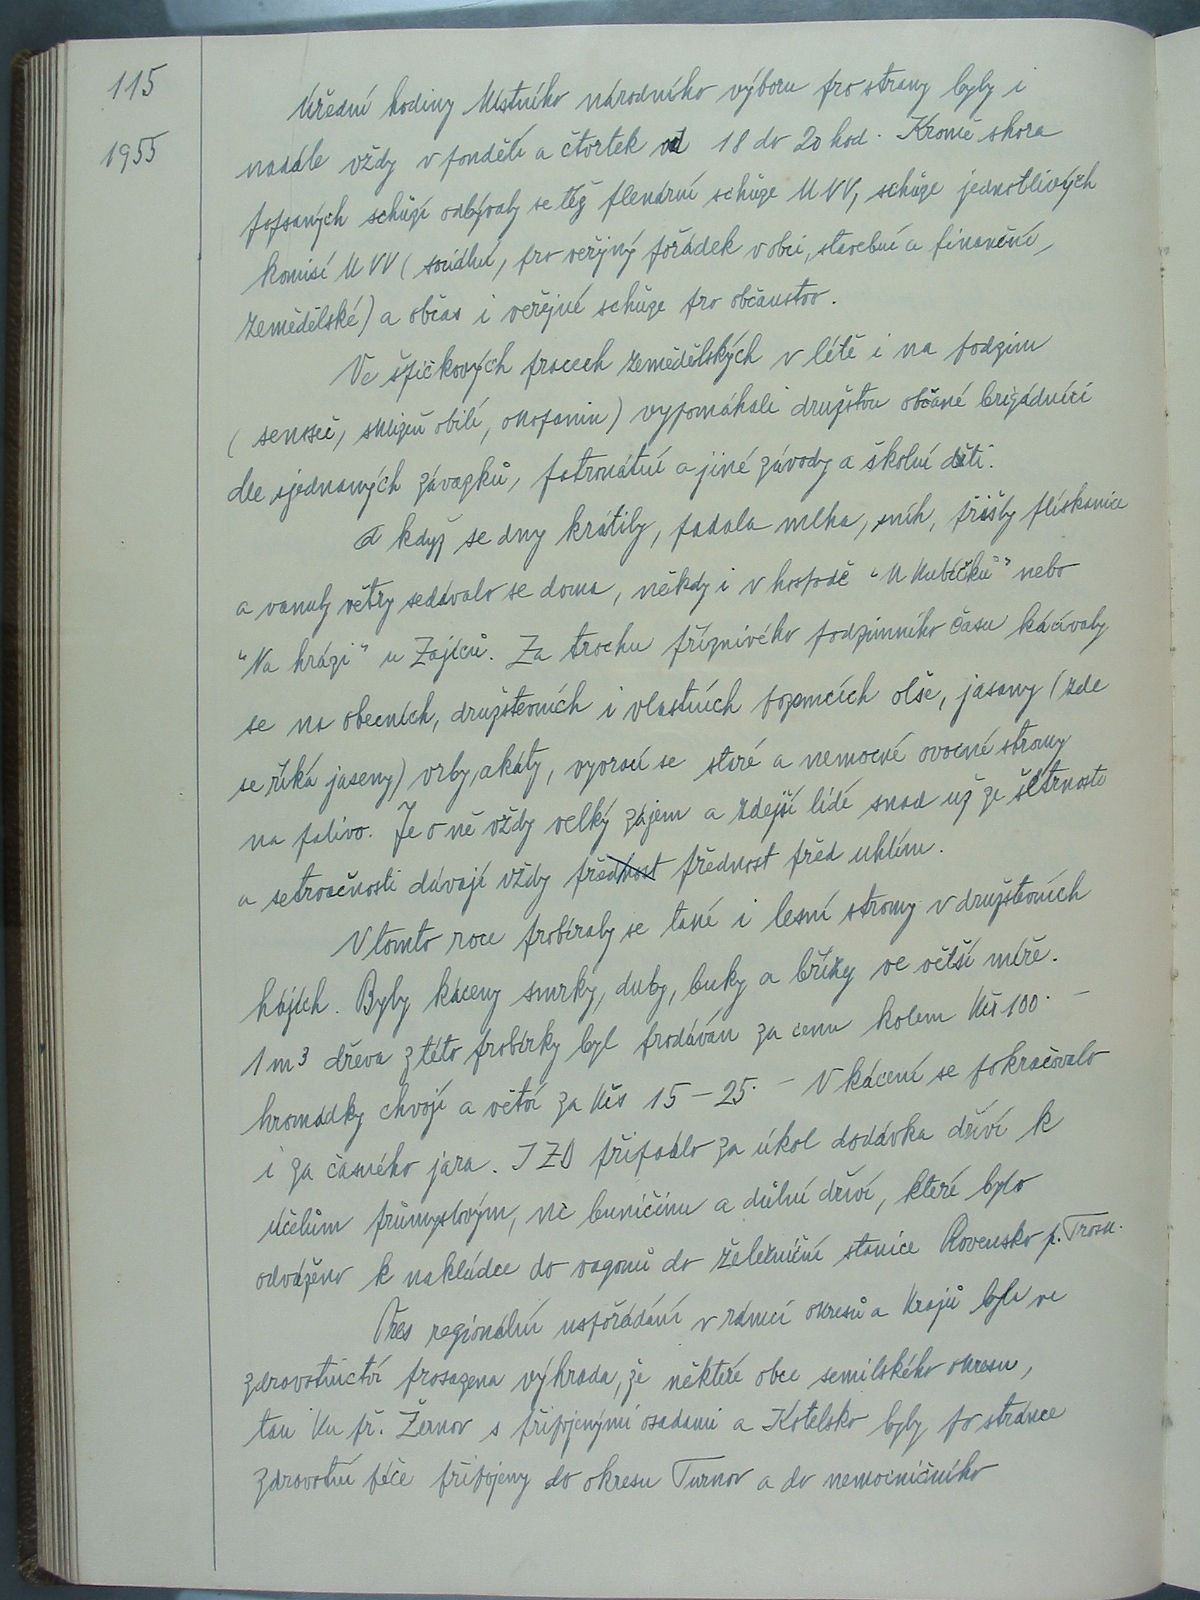 115
1955
Úřední hodiny Místního národního výboru pro strany byly i
nadále vždy v pondělí a čtvrtek od 18 do 20 hod. Kromě shora
popsaných schůzí odbývaly se též plenární schůze MNV, schůze jednotlivých
komisí MNV (sociální, pro veřejný pořádek v obci, stavební a finanční,
zemědělské) a občas i veřejné schůze pro občanstvo.
Ve špičkových pracech zemědělských v létě i na podzim
(senoseč, sklizeň obilí, okopanin) vypomáhali družstvu občané brigádníci
dle sjednaných závazků, patronátní a jiné závody a školní děti.
A když se dny krátily, padala mlha, sníh, přišly plískanice
a vanuly větry sedávalo se doma, někdy i v hospodě "U Kubíčků" nebo
"Na hrázi" u Zajíců. Za trochu příznivého podzimního času kácívaly
se na obecních, družstevních i vlastních pozemcích olše, jasany (zde
se říká jaseny) vrby, akáty, vyvrací se staré a nemocné ovocné stromy
na palivo. Je o ně vždy velký zájem a zdejší lidé snad už ze šetrnosti
a setrvačnosti dávají vždy přednost přednost před uhlím.
V tomto roce probíraly se také i lesní stromy v družstevních
hájích. Byly káceny smrky, duby, buky a břízy ve větší míře.
1 m3 dřeva z této probírky byl prodáván za cenu kolem Kčs 100.–
hromádky chvojí a větví za Kčs 15–25.– V kácení se pokračovalo
i za časného jara. JZD připadlo za úkol dodávka dříví k
účelům průmyslovým, na buničinu a důlní dříví, které bylo
odváženo k nakládce do vagonů do železniční stanice Rovensko p. Trosk.
Přes regionální uspořádání v rámci okresů a krajů byla ve
zdravotnictví prosazena výhrada, že některé obce semilského okresu,
tak ku př. Žernov s připojenými osadami a Kotelsko byly po stránce
zdravotní péče připojeny do okresu Turnov a do nemocničního